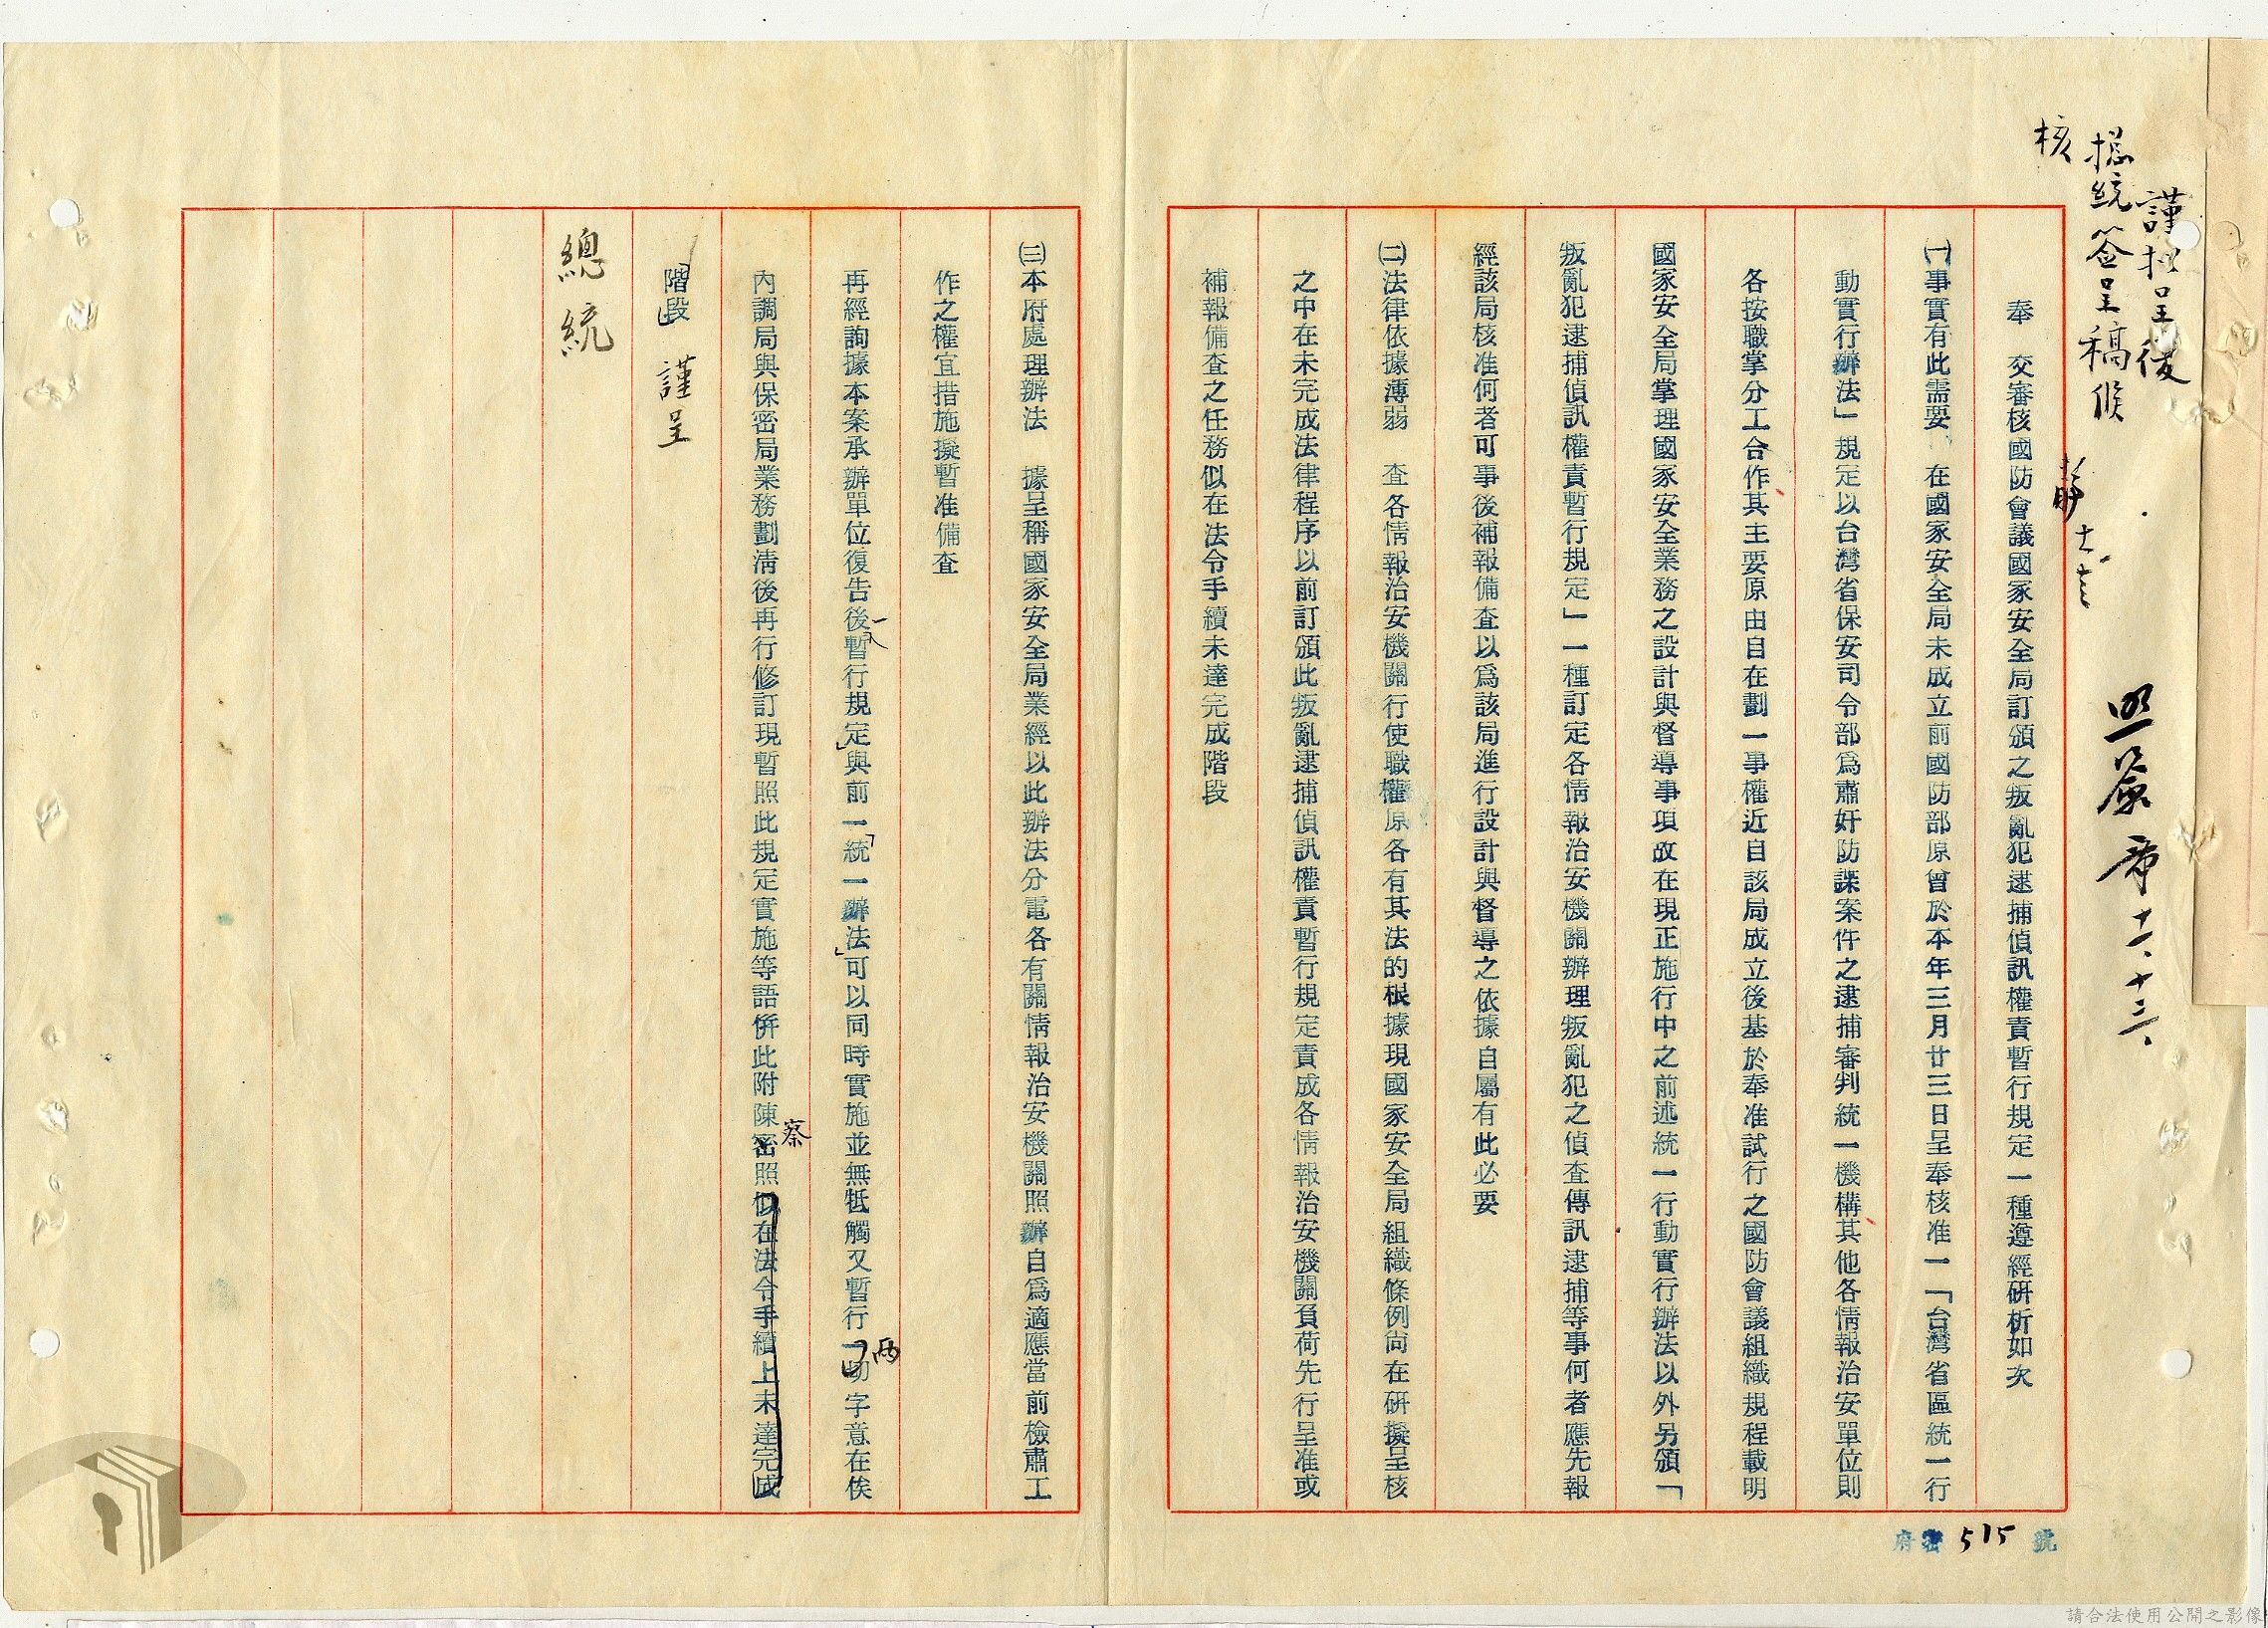 謹擬呈復
總統簽呈稿候
核
十二、十三、
奉　交審核國防會議國家安全局訂頒之叛亂犯逮捕偵訊權責暫行規定一種遵經研析如次
㈠事實有此需要、在國家安全局未成立前國防部原曾於本年三月廿三日呈奉核准一「台灣省區統一行
動實行辦法」規定以台灣省保安司令部為肅奸防諜案件之逮捕審判統一機構其他各情報治安單位則
各按職掌分工合作其主要原由自在劃一事權近自該局成立後基於奉准試行之國防會議組織規程載明
國家安全局掌理國家安全業務之設計與督導事項故在現正施行中之前述統一行動實行辦法以外另頒「
叛亂犯逮捕偵訊權責暫行規定」一種訂定各情報治安機關辦理叛亂犯之偵查傳訊逮捕等事何者應先報
經該局核准何者可事後補報備查以為該局進行設計與督導之依據自屬有此必要
㈡法律依據薄弱　查各情報治安機關行使職權原各有其法的根據現國家安全局組織條例尚在研擬呈核
之中在未完成法律程序以前訂頒此叛亂逮捕偵訊權責暫行規定責成各情報治安機關負荷先行呈准或
補報備查之任務似在法令手續未達完成階段
㈢本府處理辦法　據呈稱國家安全局業經以此辦法分電各有關情報治安機關照辦自為適應當前檢肅工
作之權宜措施擬暫准備查
再經詢據本案承辦單位復告後暫行規定」與前一「統一辦法」可以同時實施並無牴觸又暫行一切字意在俟
兩
內調局與保密局業務劃清後再行修訂現暫照此規定實施等語併此附陳密照似在法令手續上未達完成
察
階段　謹呈
總統
府密515號
請合法使用公開之影像